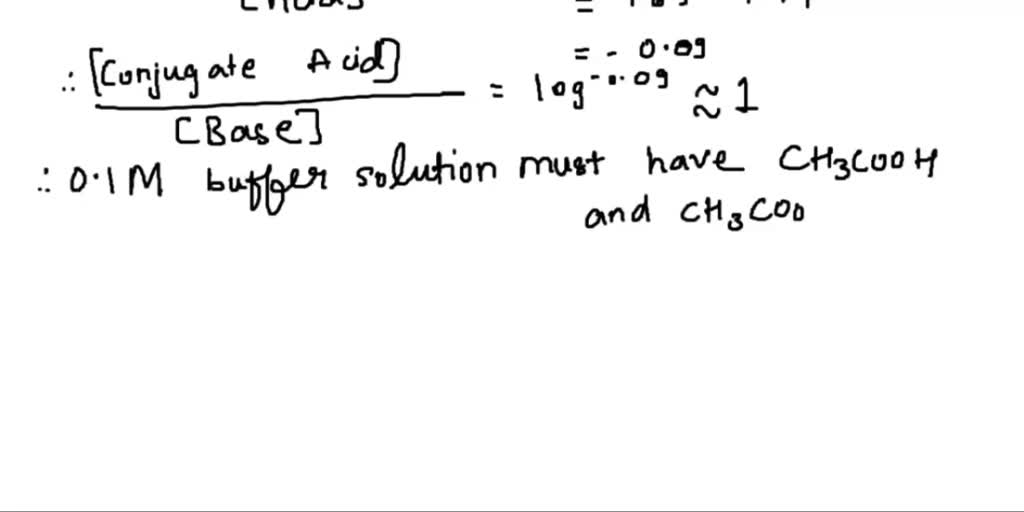 = - 0.09
∴ [Conjugate Acid] / [Base] = log^-0.09 ≈ 1
∴ 0.1M buffer solution must have CH3COOH
and CH3COO